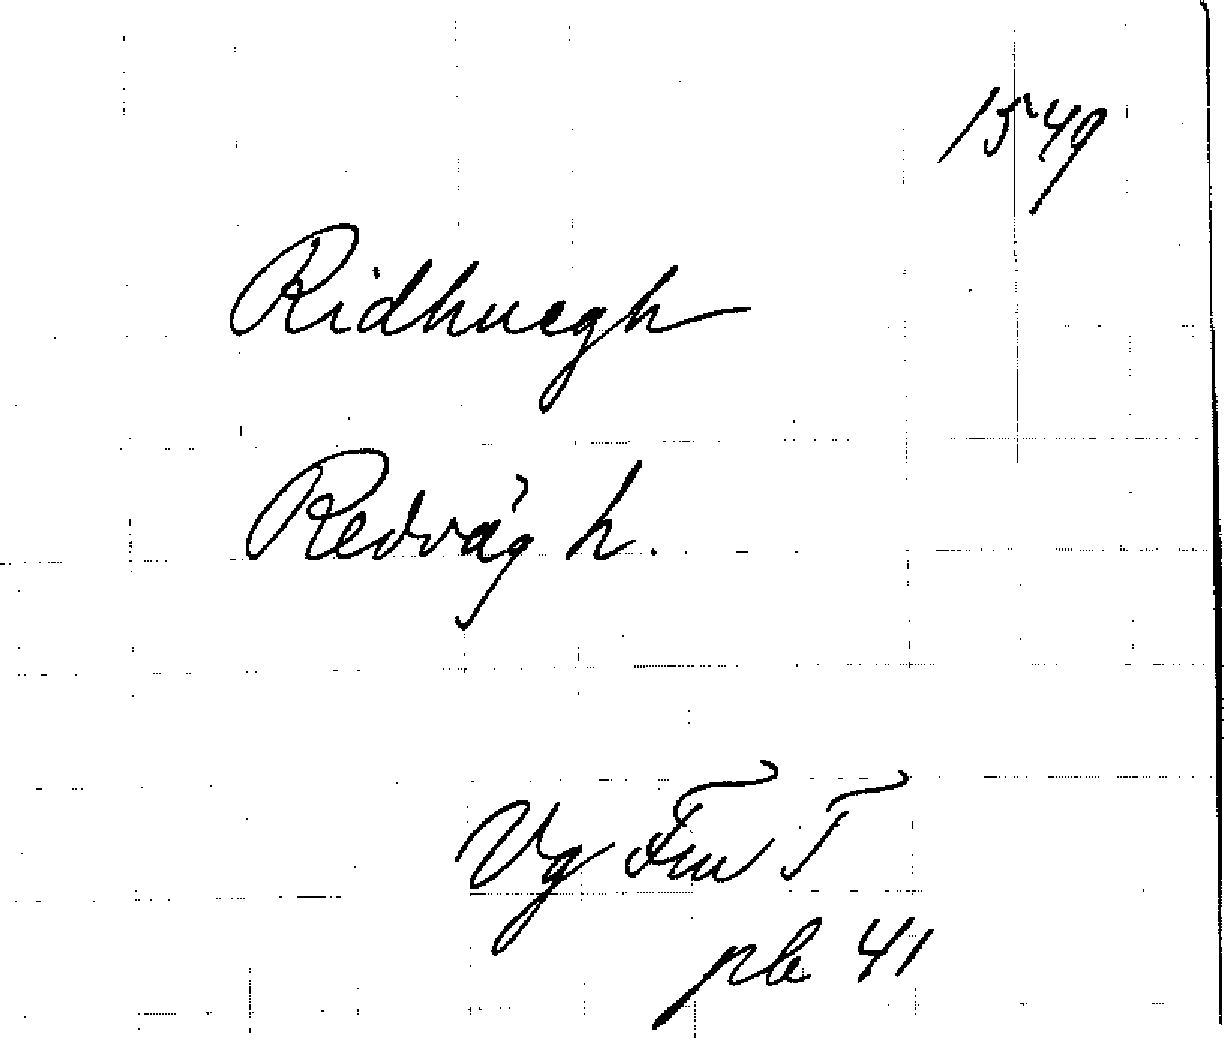 1549
Ridhuegh
Redväg h.
Vg Fm T
pb 41